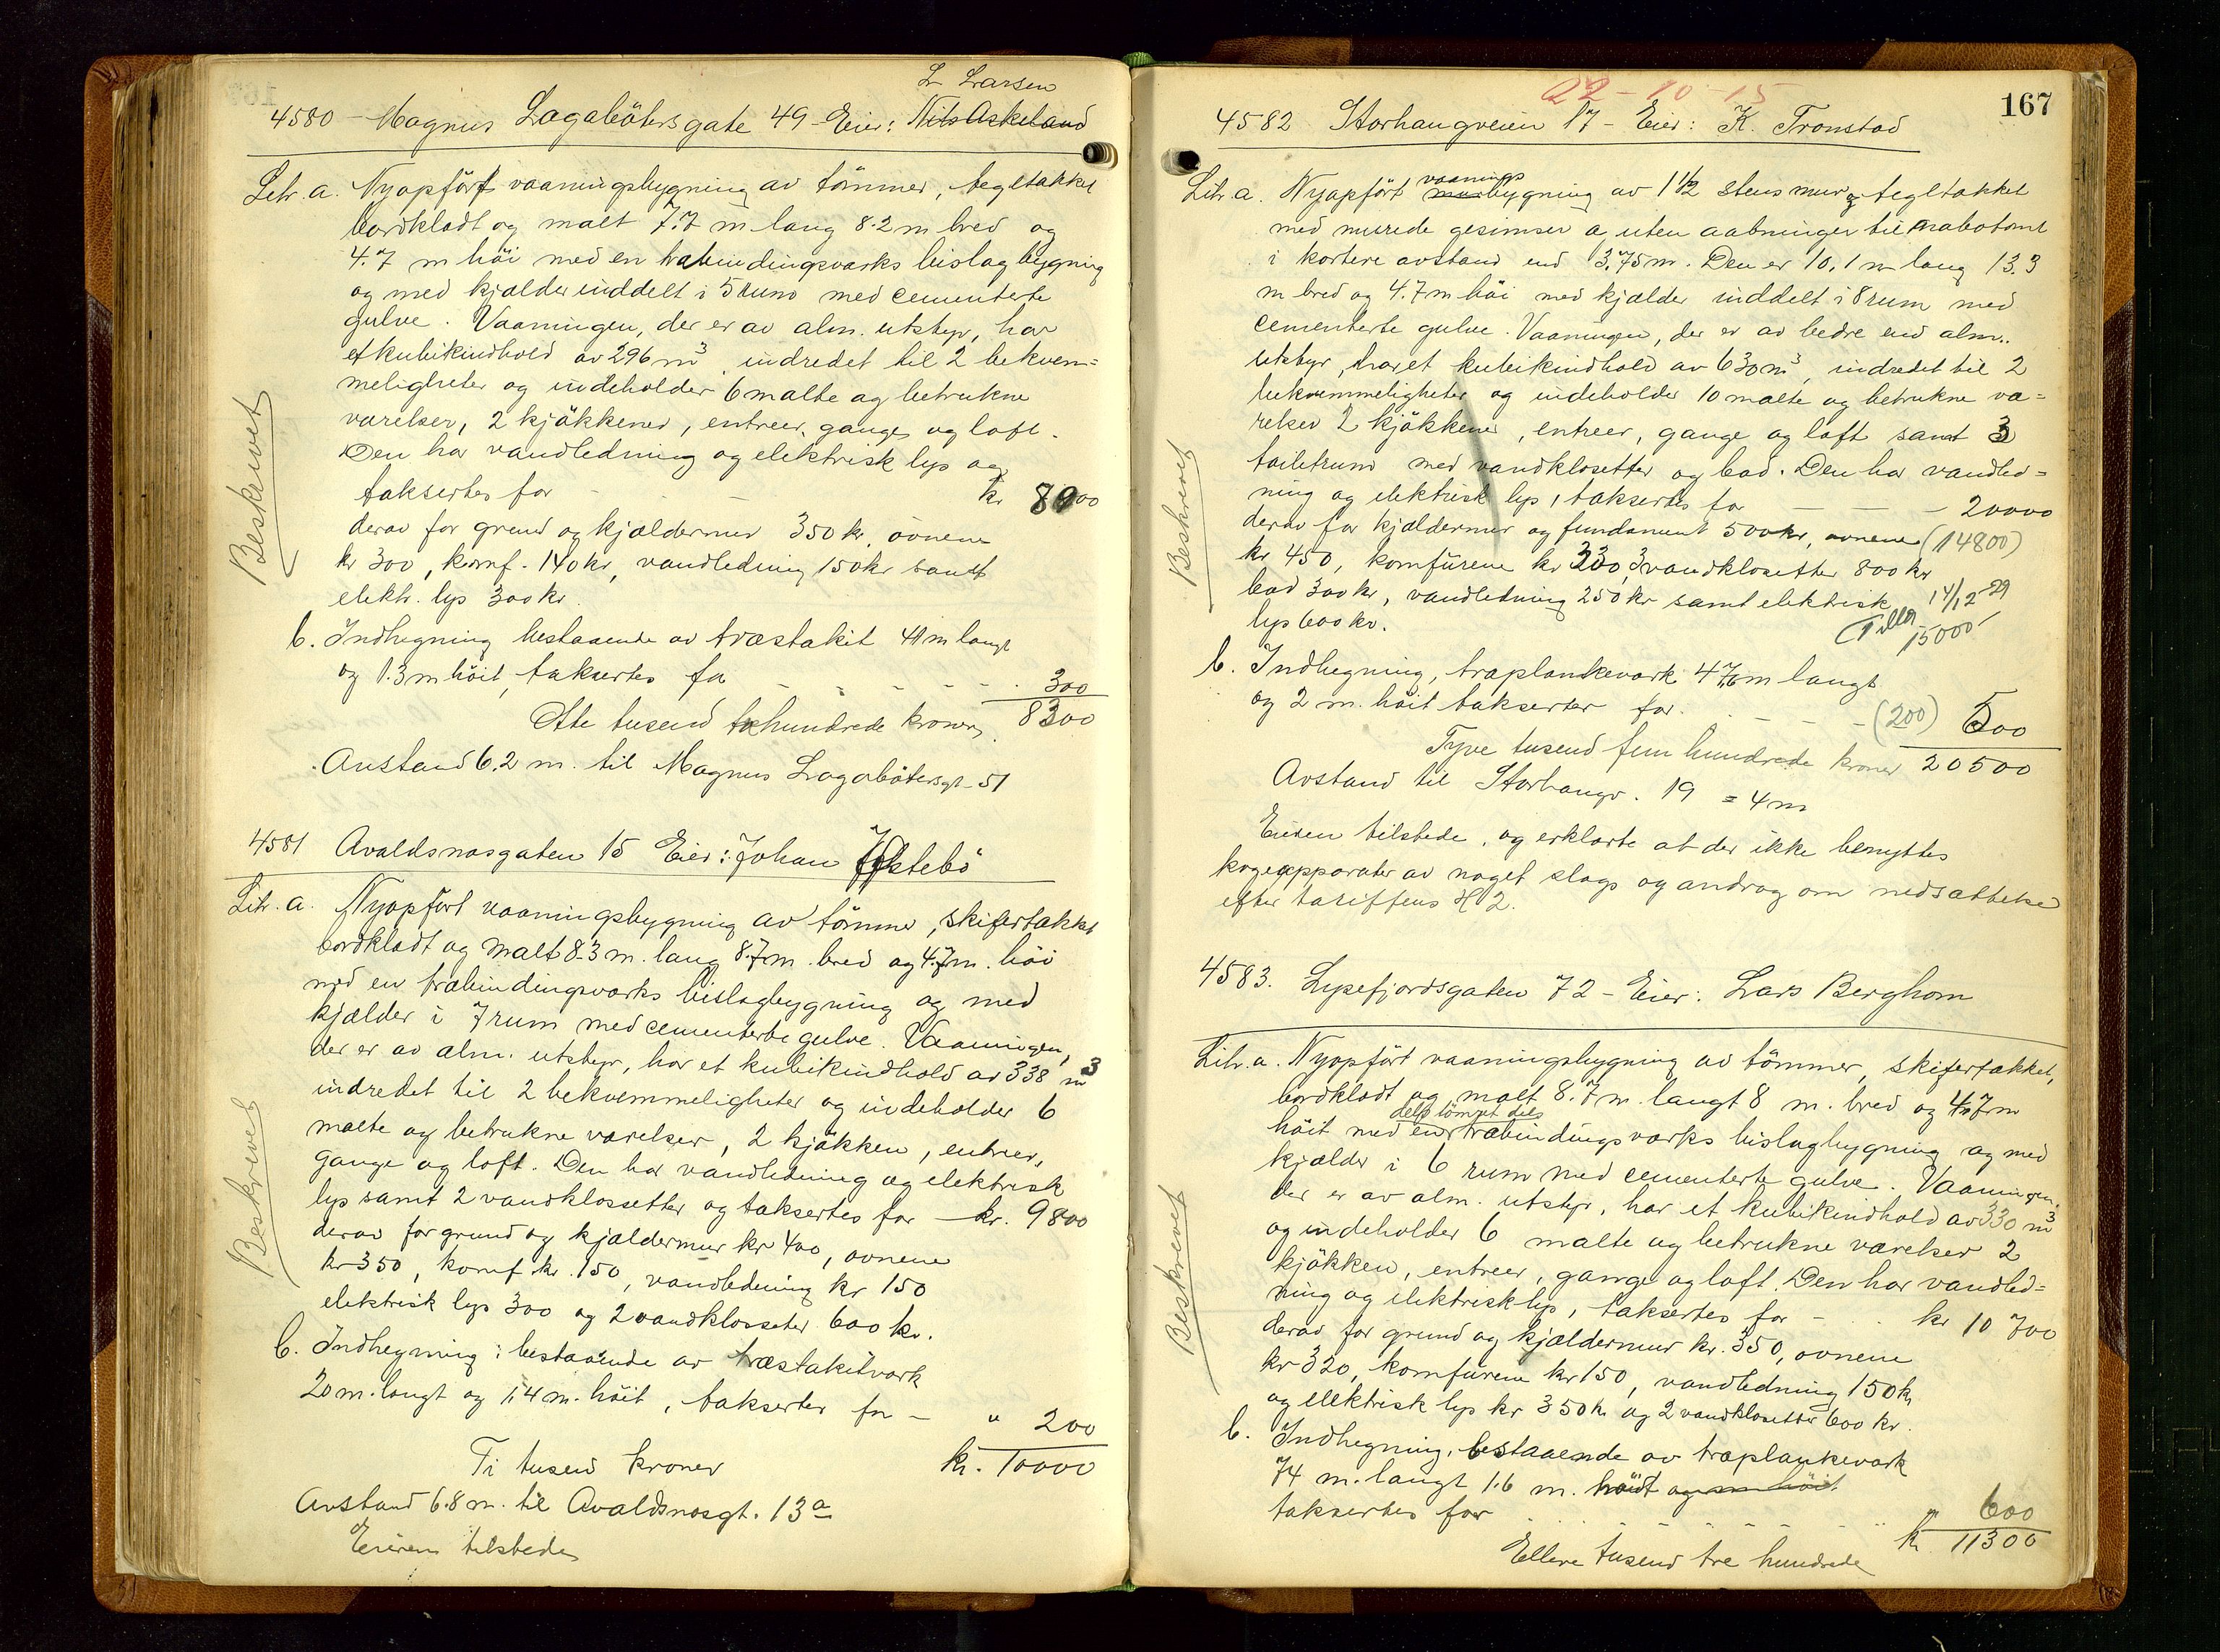 L Larsen
4580 - Magnus Lagabötersgate 49 - Eier: Nils Askeland
Litr. a. Nyopført vaaningsbygning av tömmer, tegltækket
bordklædt og malt 7.7 m lang 8.2 m bred og
4.7 m höi med en træbindingsværks bislagbygning
og med kjælder inddelt i 5 rum med cementerte
gulve. Vaaningen, der er av alm. utstyr, har
et kubikindhold av 296 m3, indredet til 2 bekvem=
meligheter og indeholder 6 malte og betrukne
værelser, 2 kjökkener, entreer, gange og loft.
Den har vandledning og elektrisk lys og
taksertes for - - kr 8000
derav for grund og kjældermur 350 kr, ovnene
kr 300, komf. 140 kr, vandledning 150 kr samt
elektr. lys 300 kr.
b. Indhegning bestaaende av træstakit 41 m langt
og 1.3 m höit, taksertes for - - - - - 300
Otte tusend trehundrede kroner, 8300
Avstand 6.2 m. til Magnus Lagabötersgt. 51
Beskrevet
4581 Avaldsnæsgaten 15 Eier: Johan Jökstebö
Litr. a. Nyopfört vaaningsbygning av tömmer, skifertækket
bordklædt og malt 8.3 m. lang 8.7 m. bred og 4.7 m. höi
med en træbindingsværks bislagbygning og med
kjælder i 7 rum med cementerte gulve. Vaaningen,
der er av alm. utstyr, har et kubikindhold av 338 m3
indredet til 2 bekvemmeligheter og indeholder 6
malte og betrukne værelser, 2 kjökken, entreer,
gange og loft. Den har vandledning og elektrisk
lys samt 2 vandklossetter og taksertes for - kr. 9800
derav for grund og kjældermur kr 400, ovnene
kr 350, komf kr. 150, vandledning kr 150
elektrisk lys 300 og 2 vandklosseter 600 kr.
b. Indhegning: bestaaende av træstakitværk
20 m. langt og 1.4 m. höit, taksertes for - " 200
Ti tusend kroner kr. 10000
Avstand 6.8 m. til Avaldsnæsgt. 13a
Eieren tilstede
Beskrevet
167
22-10-15
4582 Storhaugveien 17 - Eier: K. Tronstad
Litr. a. Nyopfört murbygning vaanings av 1 1/2 stens mur og tegltækket
med murede gesimser og uten aabninger til nabotomt
i kortere avstand end 3.75 m. Den er 10.1 m lang 13.3
m bred og 4.7 m höi med kjælder inddelt i 8 rum med
cementerte gulve. Vaaningen, der er av bedre end alm.
utstyr, har et kubikindhold av 630 m3, indredet til 2
bekvemmeligheter og indeholder 10 malte og betrukne væ=
relser 2 kjökkener, entreer, gange og loft samt 3
toiletrum med vandklosetter og bad. Den har vandled=
ning og elektrisk lys, taksertes for - - - 20000
derav for kjældermur og fundament 500 kr, ovnene (14800)
kr 450, komfürene kr 330, 3 vandklosetter 800 kr
bad 300 kr, vandledning 250 kr samt elektrisk 14/12 29
lys 600 kr. 15000
b. Indhegning, træplankeværk 47,6 m langt
og 2 m. höit taksertes for. - - - (200) 500
Tyve tusend fem hundrede kroner 20500
Avstand til Storhaugv. 19 = 4 m
Eieren tilstede, og erklærte at der ikke benyttes
kogeapparater av noget slags og androg om nedsættelse
efter tariffens H 2.
Beskrevet
4583. Lysefjordsgaten 72 - Eier: Lars Berghom
Litr. a. Nyopfört vaaningsbygning av tömmer, skifertækket,
bordklædt og malt 8.7 m. langt 8 m. bred og 4.7 m
höit med en dels tömret dels træbindingsværks bislagbygning og med
kjælder i 6 rum med cementerte gulve. Vaaningen,
der er av alm. utstyr, har et kubikindhold av 330 m3
og indeholder 6 malte og betrukne værelser 2
kjökken, entreer, gange og loft. Den har vandled=
ning og elektrisk lys, taksertes for - . . kr 10 700
derav for grund og kjældermur kr. 350, ovnene
kr 320, komfürene kr 150, vandledning 150 kr
og elektrisk lys kr 350 kr og 2 vandklosetter 600 kr.
b. Indhegning, bestaaende av træplankeværk
74 m. langt 1.6 m. höidt og m höit
taksertes for - - - - - " 600
Elleve tusend tre hundrede kr 11300
Beskrevet